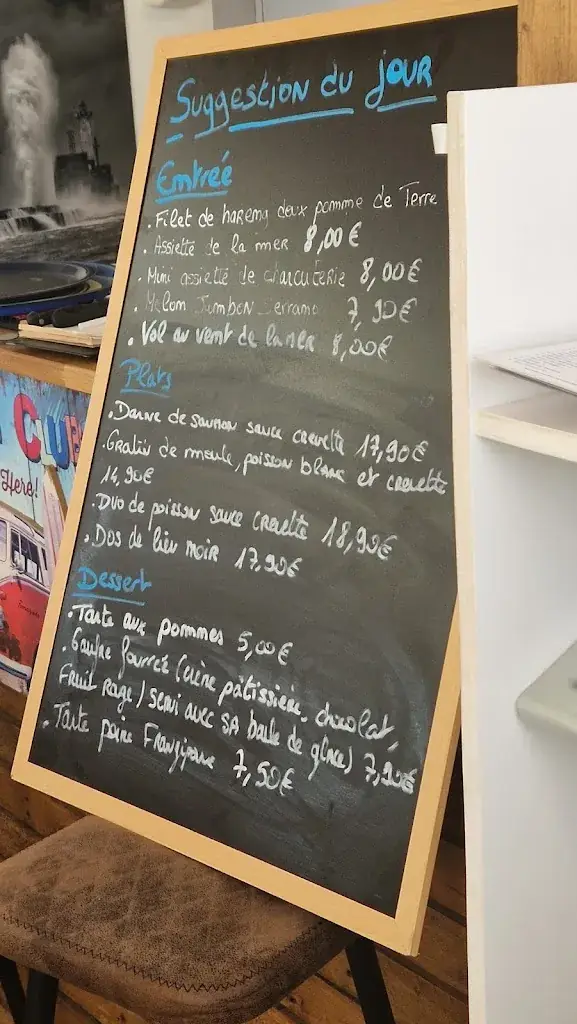 Suggestion du jour
Entreé
. Filet de hareng doux pomme de Terre
. Assiette de la mer 8,00€
. Mini assiette de charcuterie 8,00€
. Melon Jambon Serrano 7,90€
. Vol au vent de la mer 8,00€
Plats
. Darne de saumon sauce crevette 17,90€
. Gratin de moule, poisson blanc et crevette
14,90€
. Duo de poisson sauce crevette 18,90€
. Dos de lieu noir 17,90€
Dessert
. Tarte aux pommes 5,00€
. Gaufre fourrée (crème pâtissière, chocolat,
Fruit Rouge / servi avec SA boule de glace) 7,90€
. Tarte poire Frangipane 7,50€
CUB
Here!